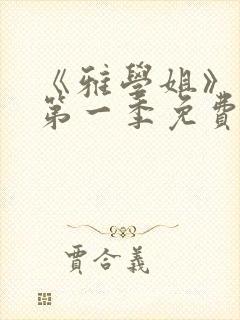 《雅學姐》
第一季免費
賈合義